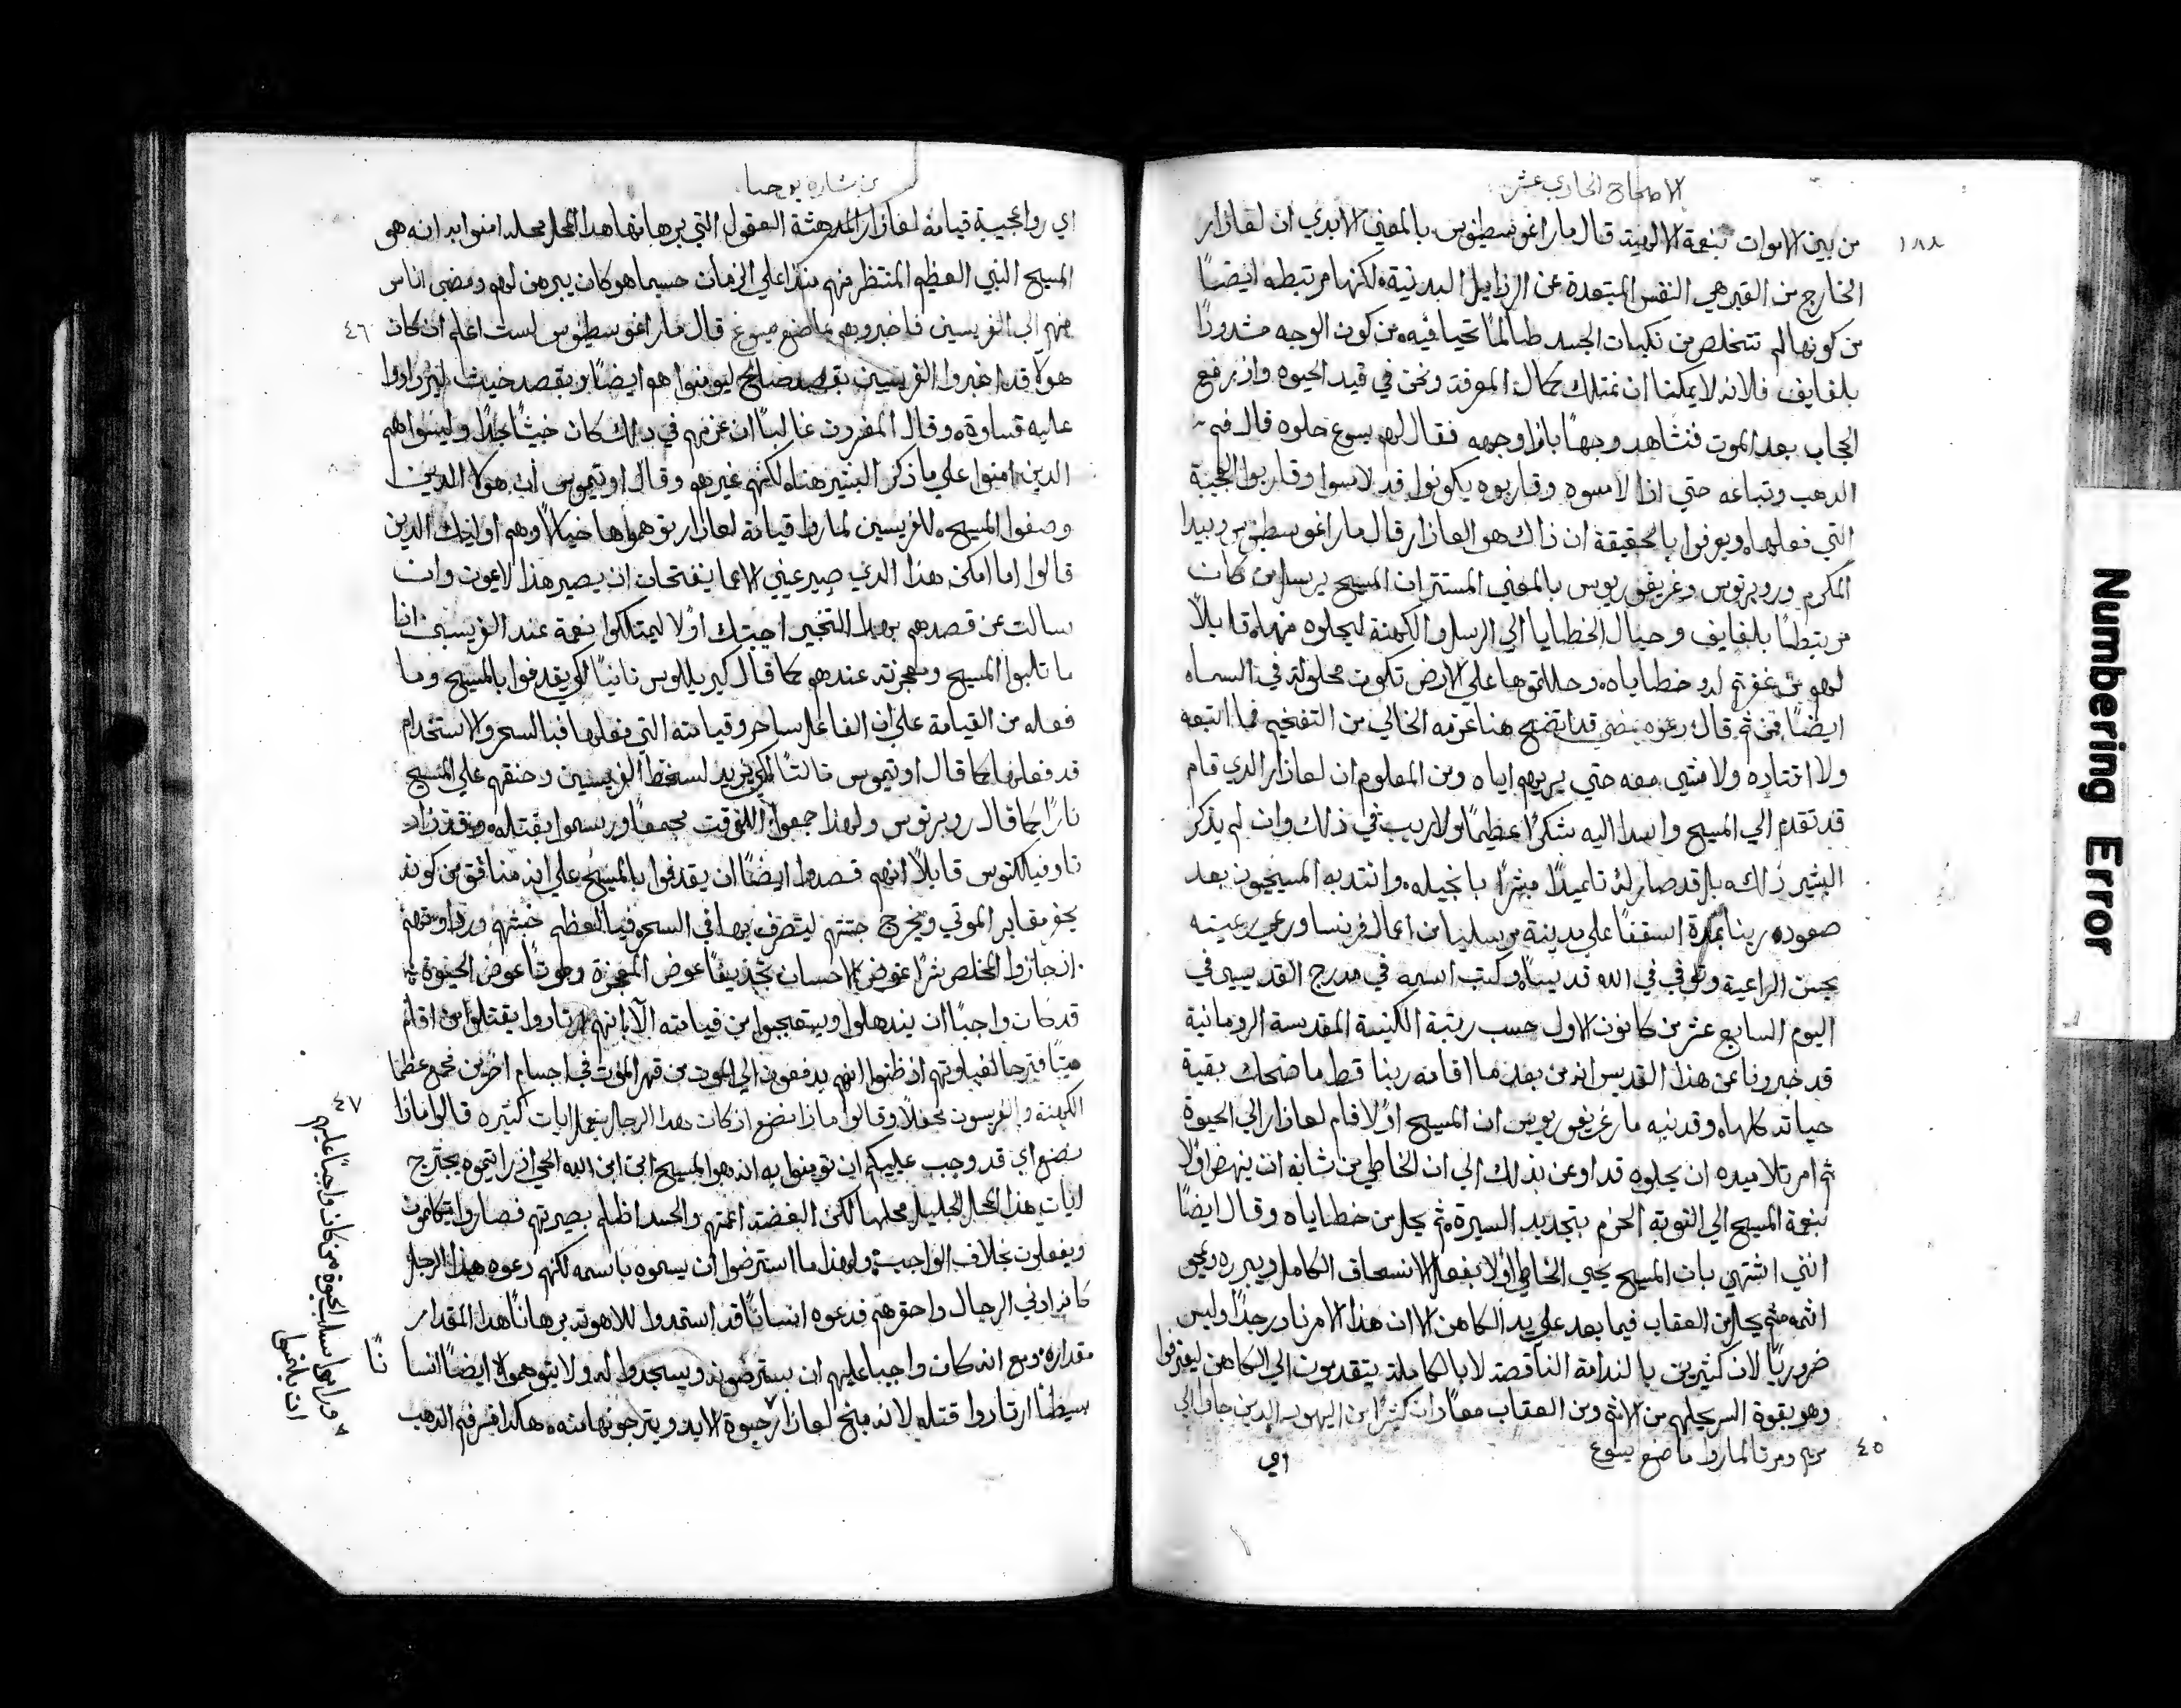 الاصحاح الحادي عشر
١٨٨
من بين الاموات بنعمة الالهية قال مار اغوسطينوس بالمعني الابدي ان لعازار
الخارج من القبر هي النفس المبتعدة عن الرذايل البدنية لكنها مرتبطه ايضًا
من كونها لم تتخلص من نكبات الجسد طالمًا تحيا فيه من كون الوجه مشدودًا
بلفايف فلانه لا يمكننا ان نمتلك كمال المعرفة ونحن في قيد الحيوه واذ يرفع
الحجاب بعد الموت فنشاهد وجهًا بازا وجهه فقال لهم يسوع حلوه قال فم
الدهب وتباعه حتي اذا لامسوه وقاربوه يكونوا قد لامسوا وقاربوا العجيبة
التي فعلها ويعرفوا بالحقيقة ان ذاك هو العازار قال مار اغوسطينوس وبيدا
المكرم وروبرتوس وغريغوريوس بالمعني المستتر ان المسيح يرسل من كان
مرتبطًا بلفايف وحبال الخطايا الي الرسل والكهنة ليحلوه منها قايلًا
لهم من غفرتم له خطاياه وحللتموها علي الارض تكون محلولة في السماه
ايضًا فمن ثم قال دعوه يمضي قد اتضح هنا عزمه الخالي من التفخيم فما اتبعه
ولا اقتاده ولا مشي معه حتي يريهم اياه ومن المعلوم ان لعازار الدي قام
قد تقدم الي المسيح واسدا اليه شكرًا عظيمًا ولا ريب في ذلك وان لم يذكر
البشير ذلك بل قد صار له تلميذًا مبشرًا بانجيله وانتدبه المسيحيون بعد
صعود ربنا بمدة اسقفًا علي مدينة مرسليا من اعمال فرنسا ورعي رعيته
بحسن الراعية وتوفي في الله قديسًا وكتب اسمه في مدرج القديسين في
اليوم السابع عشر من كانون الاول حسب رتبة الكنيسة المقدسة الرومانية
قد خبرونا عن هذا القديس انه من بعد ما اقامه ربنا قط ما ضحك بقية
حياته كلها وقد نبه مار غريغوريوس ان المسيح اولًا اقام لعازار الي الحيوة
ثم امر تلاميده ان يحلوه قد اوعن بذلك الي ان الخاطي من شانه ان ينهض اولًا
بنعمة المسيح الي التوبة الحزم بتجديد السيرة ثم يحل من خطاياه وقال ايضًا
انني اشتهي بان المسيح يحيي الخاطي اولًا بفعل الانسحاق الكامل ويبرره ويمحي
اثمه ثم يحل من العقاب فيما بعد علي يد الكاهن الا ان هذا الامر نادر جدًا وليس
ضروريًا لان كثيرين بالندامة الناقصة لا بالكاملة يتقدمون الي الكاهن ليعترفوا
وهو بقوة السر يحلهم من الاثم ومن العقاب معًا وان كثيرًا من اليهود الدين جاوا الي
٤٥
مريم ومرتا لما راوا ما صنع يسوع
اي
من بشارة يوحنا
اي روا عجيبة قيامة لعازار المدهشة العقول التي برهانها هذا المحل محله امنوا به انه هو
المسيح النبي العظيم المنتظر منهم منذ اعلي الزمان حسبما هو كان يبرهن لهم ومضي اناس
منهم الي الفريسين فاخبروهم بما صنع يسوع قال مار اغوسطينوس لست اعلم ان كان
٤٦
هولا قد اخبروا الفريسين بقصد صالح ليومنوا هم ايضًا او بقصد خبيث ليزدادوا
عليه قساوة وقال المفسرون غالبًا ان عزمهم في ذلك كان خبيثًا جدًا وليسوا هم
الدين امنوا علي ما ذكر البشير هناه لكنهم غيرهم وقال اوتيموس ان هولا الدين
وصفوا المسيح للفريسين لما راوا قيامة لعازار توهموها خيالًا وهم اوليك الدين
قالوا اما امكن هذا الدي صير عيني الاعما ينفتحان ان يصير هذا لا يموت وان
سالت عن قصدهم بهدا التخبير اجبتك اولًا ليمتلكوا نعمة عند الفريسين اذا
ما ثلبوا المسيح ومعجزته عندهم كما قال كيريللوس ثانيًا لكي يقدفوا بالمسيح وما
فعله من القيامة علي ان الفاعل ساحر وقيامته التي فعلها فبالسحر والاستخدام
قد فعلها كما قال اوتيموس ثالثًا لكي يزيد لسخط الفريسين وحنقهم علي المسيح
نارًا كما قال روبرتوس ولهذا جمعوا للوقت مجمعًا ورسموا بقتله وقد زاد
تاوفيلكتوس قايلًا انهم قصدوا ايضًا ان يقدفوا بالمسيح علي انه منافق من كونه
يحفر مقابر الموتي ويخرج جثثهم ليتصرف بها في السحر فيا لعظم خبثهم ورداوتهم
اذ جازوا المخلص شرًا عوض الاحسان تجديفًا عوض المعجزة وموتًا عوض الحيوة
قد كان واجبًا ان يندهلوا ويتعجبوا من قيامته الا انهم ارتاوا يقتلوا من اقام
ميتًا فيترحا لغباوتهم اذ ظنوا انهم يدفعون الي الموت من قهر الموت في اجسام اخر من فجمع عظما
الكهنة والفريسون محفلًا وقالوا ماذا نصنع اذ كان هدا الرجل يفعل ايات كثيره قالوا ماذا
٤٧
نصنع اي قد وجب عليكم ان تومنوا به انه هو المسيح ابن الله الحي اذ رايتموه يجترح
ايات هذا المحل الجليل محلها لكن البغضة اعمتهم والحسد اظلم بصيرتهم فصاروا يتكلمون
ويفعلون بخلاف الواجب ولهذا ما استرضوا ان يسموه باسمه لكنهم دعوه هدا الرجل
كانه ادني الرجال واحقرهم فدعوه انسانًا قد استمدوا للاهوته برهانًا هدا المقدار
مقداره ومع انه كان واجبا عليهم ان يسترضوه ويسجدوا له ولا يتوهموه ايضًا انسا نًا
بسيطًا ارتاوا قتله لانه منح لعازار حيوة الابد ويترجونها منه هكذا فسر فم الدهب
وراموا سلب الحيوة ممن كان واجبًا عليهم
ان يلتمسوا
Numbering Error